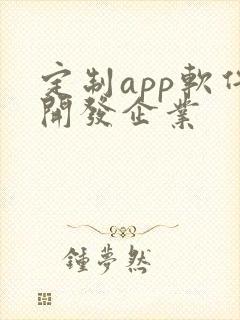 定制app軟件
開發企業
鍾夢然